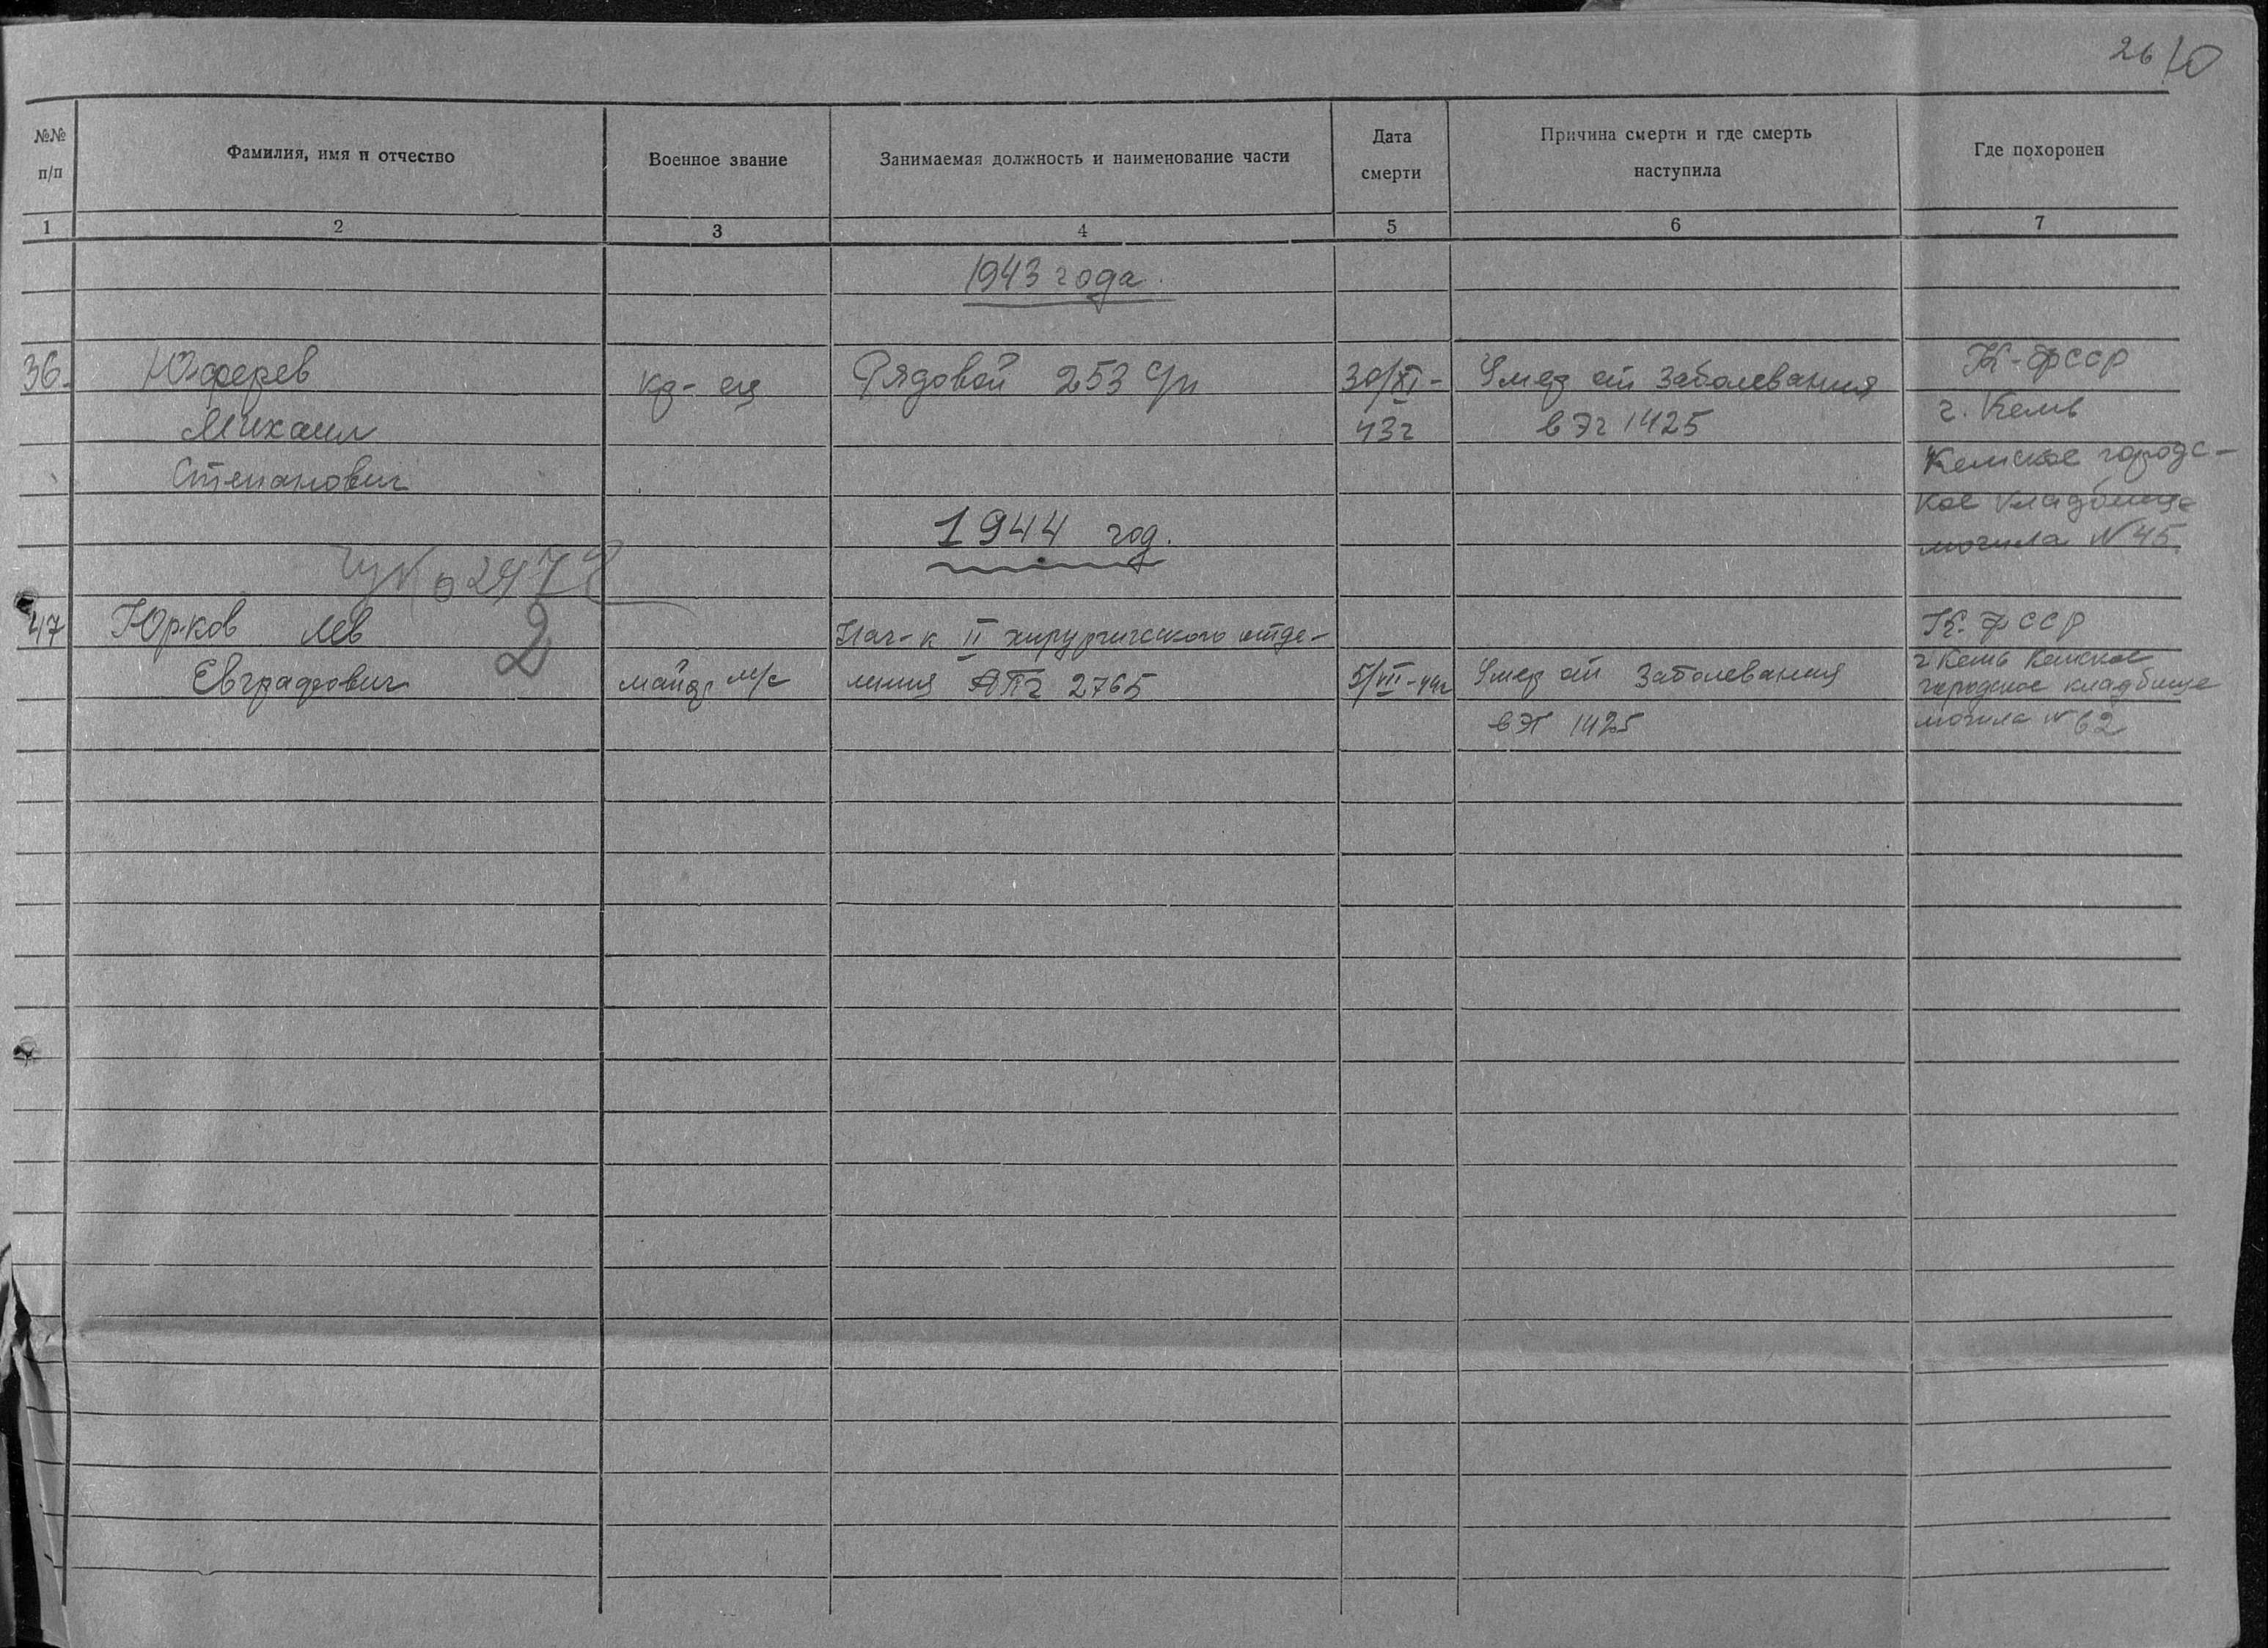 26 10
№№ п/п
Фамилия, имя и отчество
Военное звание
Занимаемая должность и наименование части
Дата смерти
Причина смерти и где смерть наступила
Где похоронен
1 2 3 4 5 6 7
1943 года.
36. Юферев кр-ец Рядовой 253 Сп 30/XI- Умер от заболевания К-фсср
Михаил 43г в Эг 1425 г. Кемь
Степанович Кемское городс-
кое кладбище
1944 год. могила № 45.
47 Юрков Лев 2 Нач-к II хирургического отде- К. фсср
Евграфович майор м/с ления 2765 5/VII-44г Умер от заболевания г Кемь Кемское
городское кладбище
в ЭГ 1425 могила № 62